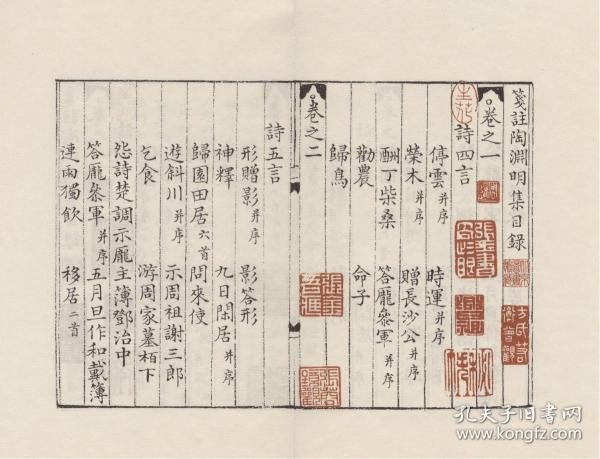 箋註陶淵明集目録
卷之一
詩四言
停雲并序 時運并序
榮木并序 贈長沙公并序
酬丁柴桑 答龐參軍并序
勸農 命子
歸鳥
卷之二
詩五言
形贈影并序 影答形
神釋 九日閑居并序
歸園田居六首 問來使
遊斜川并序 示周祖謝三郎
乞食 游周家墓栢下
怨詩楚調示龐主簿鄧治中
答龐參軍并序 五月旦作和戴主簿
連雨獨飲 移居二首
孔夫子旧书网
kongfz.com